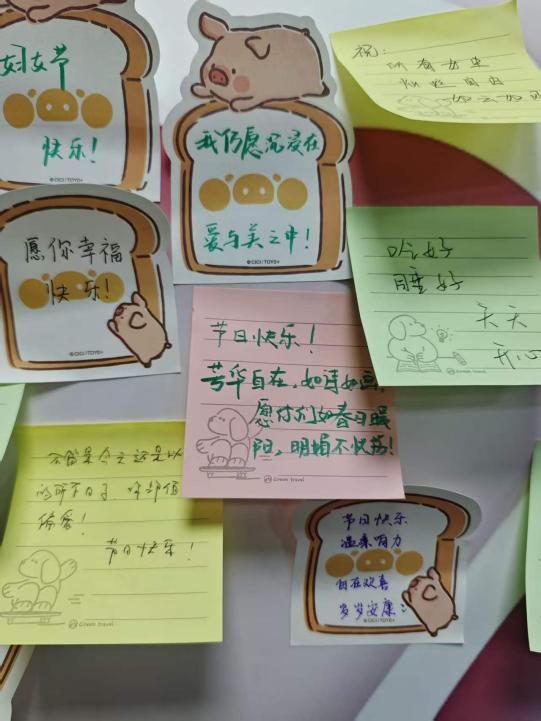 妇女节
快乐！
©CICI/TOYO+
我们愿沉浸在
爱与美之中！
©CICI/TOYO+
祝：
所有女生
灿烂自由
如
愿你幸福
快乐！
©CICI/TOYO+
吃好
睡好
天天
开心
Green travel
节日快乐！
芳华自在，如诗如画，
愿你们如春日暖
阳，明媚不忧伤！
Green travel
不管是今天还是以
的所有日子，你都值
偏爱！
节日快乐！
Green travel
节日快乐
温柔有力
自在欢喜
岁岁安康
©CICI/TOYO+